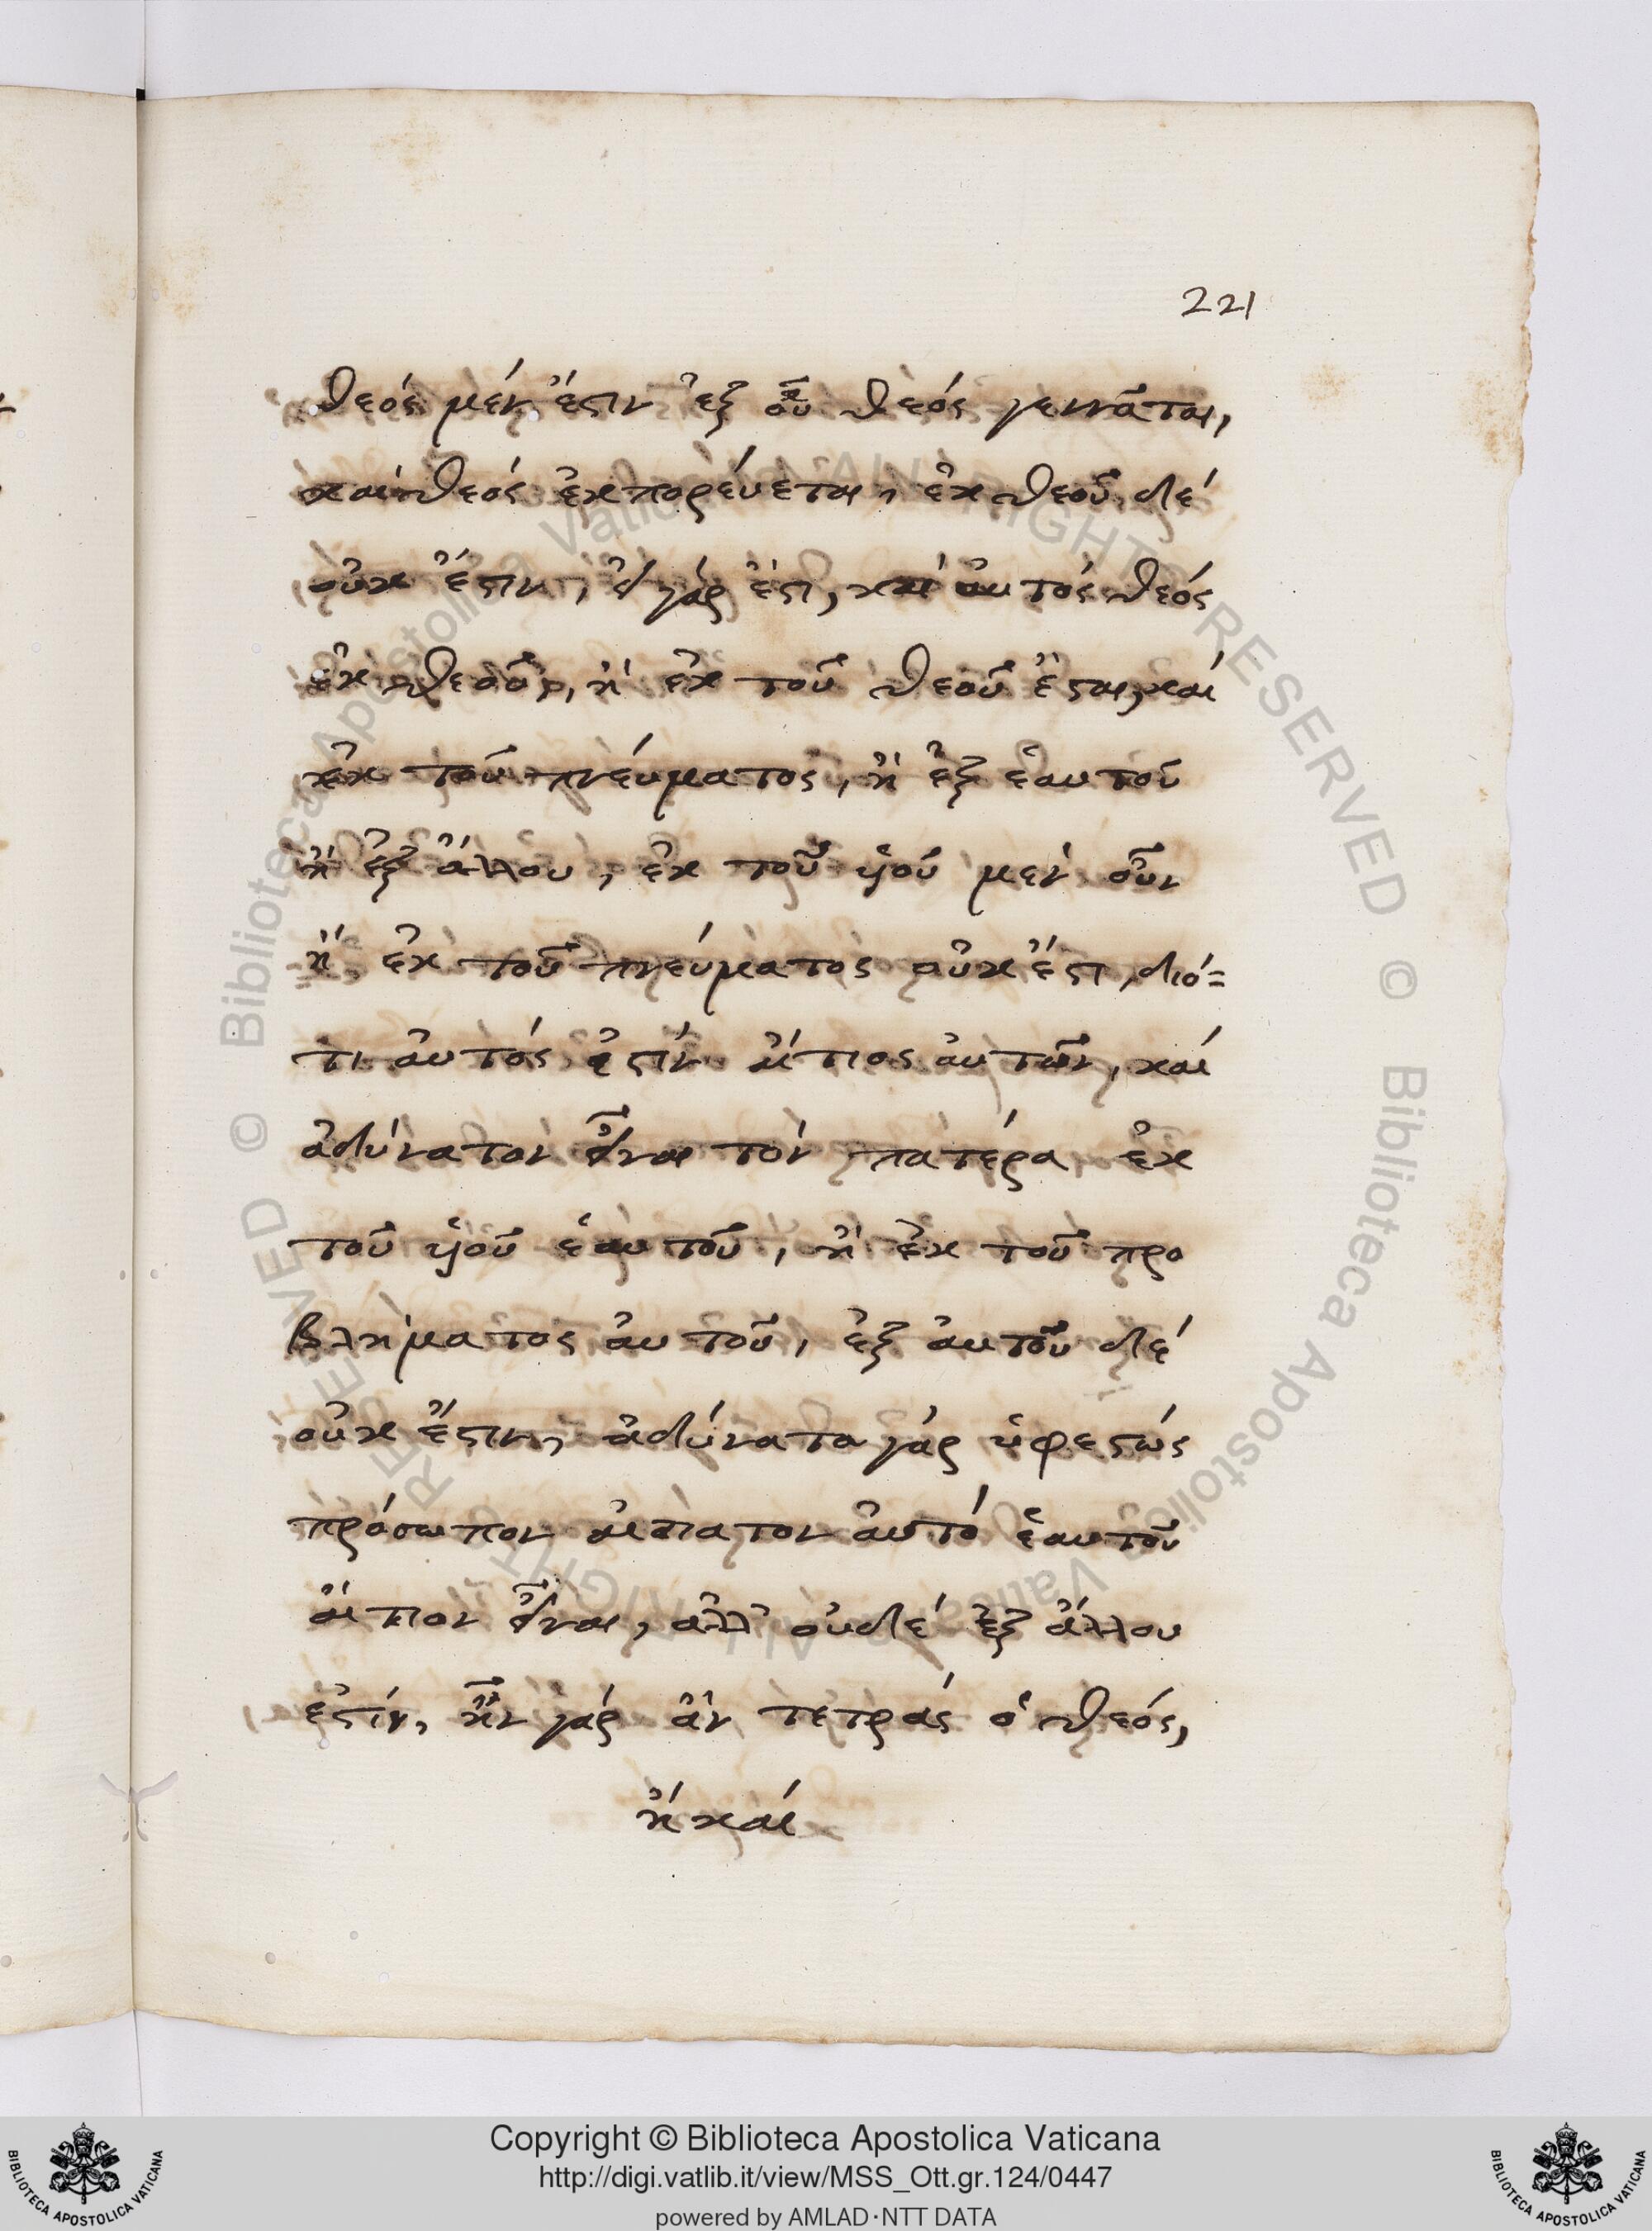 221
θεός μέν ἔστιν ἐξ οὗ θεός γεννᾶται,
καί θεός ἐκπορεύεται, ἐκ θεοῦ δέ
οὐκ ἔστιν, εἰ γάρ ἐστι, καί αὐτός θεός
ἐκ θεοῦ, ἢ ἐκ τοῦ θεοῦ ἔσται, καί
ἐκ τοῦ πνεύματος, ἢ ἐξ ἑαυτοῦ
ἢ ἐξ ἄλλου, ἐκ τοῦ υἱοῦ μέν οὖν
ἤ ἐκ τοῦ πνεύματος οὐκ ἔστι, διό=
τι αὐτός ἐστίν αἴτιος αὐτῶν, καί
ἀδύνατον εἶναι τόν πατέρα ἐκ
τοῦ υἱοῦ ἑαυτοῦ, ἢ ἐκ τοῦ προ
βλήματος αὐτοῦ, ἐξ αὐτοῦ δέ
οὐκ ἔστιν, ἀδύνατα γάρ ὑφεστώς
πρόσωπον αἰτιατον αὐτό ἑαυτοῦ
αἴτιον εἶναι, ἀλλ' οὐδέ ἐξ ἄλλου
ἐστίν, ἦν γάρ ἂν τετράς ὁ θεός,
ἤ καί
Copyright © Biblioteca Apostolica Vaticana
http://digi.vatlib.it/view/MSS_Ott.gr.124/0447
powered by AMLAD·NTT DATA
BIBLIOTECA APOSTOLICA VATICANA
BIBLIOTECA APOSTOLICA VATICANA
© Biblioteca Apostolica Vaticana ALL RIGHTS RESERVED © Biblioteca Apostolica Vaticana ALL RIGHTS RESERVED